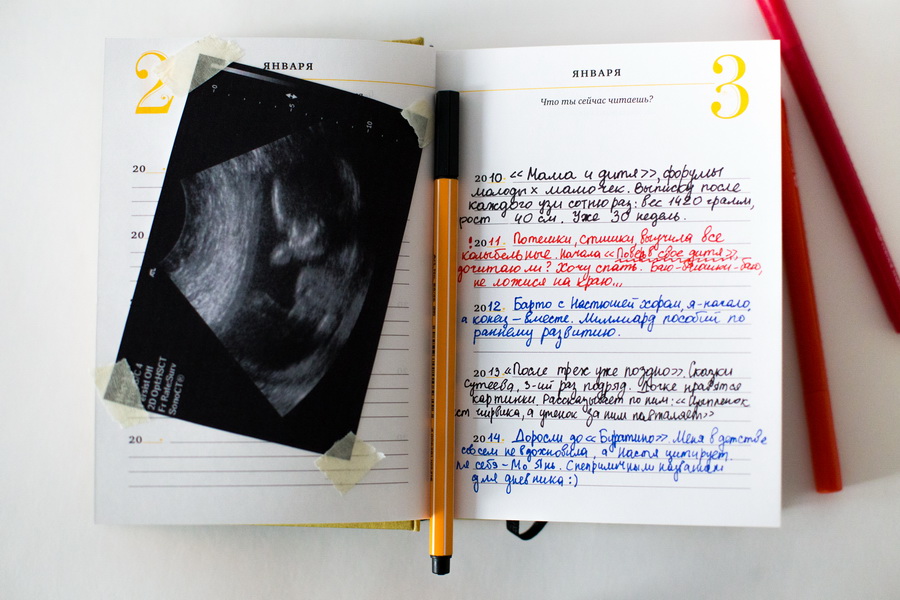 2
ЯНВАРЯ
20
20
20
-0
-5
-10
C 4
Print Off
2D OptHSCT
Fr RateSurv
SonoCT®
ЯНВАРЯ
3
Что ты сейчас читаешь?
2010 «Мама и дитя», форумы
молодых мамочек. Выписку после
каждого узи сотню раз: вес 1420 грамм,
рост 40 см. Уже 30 недель.
! 2011. Потешки, стишки, выучила все
колыбельные. Начала «Поверь в свое дитя»,
дочитаю ли? Хочу спать. Баю-баюшки-баю,
не ложися на краю...
2012. Барто с Настюшей хором, я-начало,
а конец - вместе. Миллиард пособий по
раннему развитию.
2013 «После трех уже поздно». Сказки
Сутеева, 3-ий раз подряд. Дочке нравятся
картинки. Рассказывает по ним: «Цыпленок
ст чирвика, а ученок за ним повталяет»
2014. Доросли до «Буратино». Меня в детстве
совсем не вдохновила, а Настя цитирует.
ля себя - Мо Янь. С неприличным названием
для дневника :)